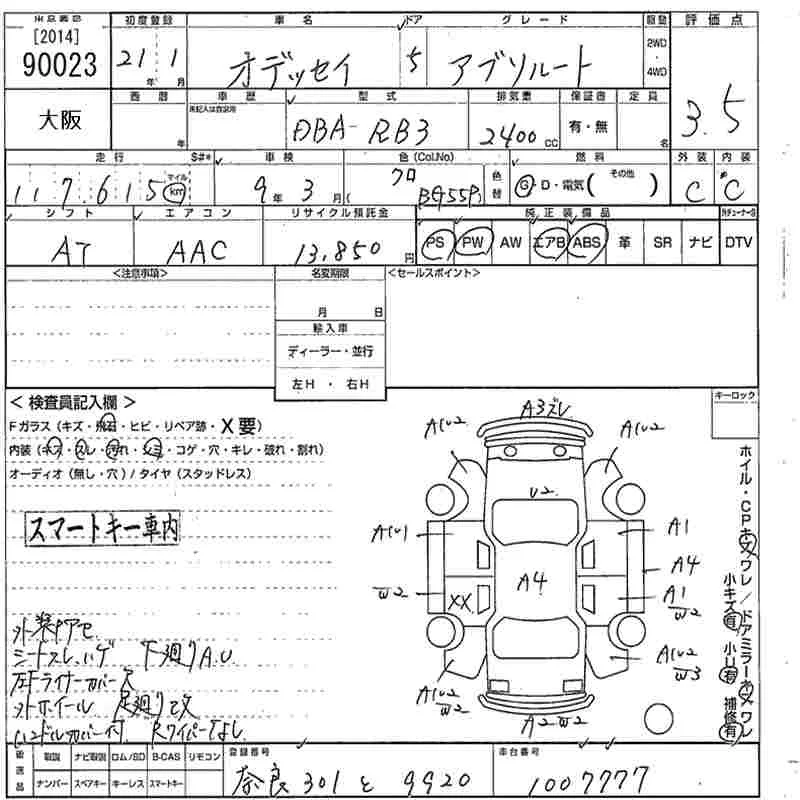 [2014]
90023
大阪
初度登録
21 年 1 月
西暦
年
車名
オデッセイ
ドア
5
グレード
アブソルート
駆動
2WD
・
4WD
評価点
3.5
車歴
未記入は自家用
型式
DBA-RB3
排気量
2400 CC
保証書
有・無
定員
名
走行 S#*
117,615 マイル km
車検
9 年 3 月
色(Col.No)
クロ
B955P
色替
燃料
G・D・電気( その他 )
外装
C
内装
C
シフト
AT
エアコン
AAC
リサイクル預託金
13,850 円
純正装備品
PS PW AW エアB ABS 革 SR ナビ
DTV
<注意事項>
名変期限
月 日
輸入車
ディーラー・並行
左H ・ 右H
<セールスポイント>
<検査員記入欄>
キーロック
Fガラス(キズ・飛石・ヒビ・リペア跡・X要)
内装(キズ・スレ・汚れ・シミ・コゲ・穴・キレ・破れ・割れ)
オーディオ(無し・穴)/タイヤ(スタッドレス)
スマートキー車内
外装ボアセ
シートスレ、ハゲ 下廻りA.U
左Fライナーカバー欠
外ホイール 足廻り改
ハンドルカバー付 Rワイパーなし
A3ズレ
A(U2
A(U2
U2
A(U1
A1
A4
A4
W2
XX
A1
W2
A(U2
W2
A(U2
W3
A2W2
ホイル・CPキズワレ/ドアミラーキズワレ
小キズ有 小U有 補修有
後送品
取説 ナビ取説 ロム/SD B-CAS リモコン
ナンバー スペアキー キーレス スマートキー
登録番号
奈良 301 と 9920
車台番号
1007777